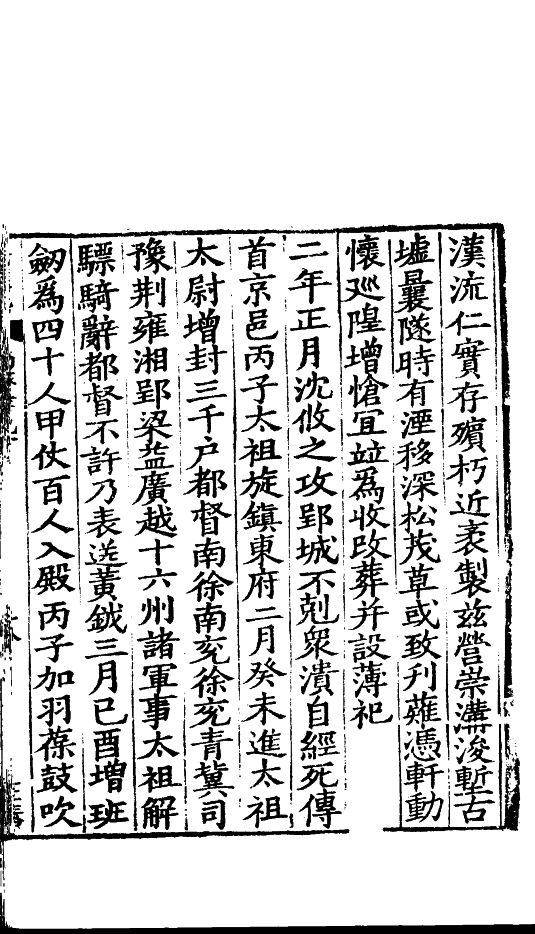 漢流仁實存殯朽近袤製茲營崇溝浚塹古
墟曩隧時有湮移深松茂草或致刋薙憑軒動
懷巡隍增愴冝竝爲收改葬并設薄祀
二年正月沈攸之攻郢城不剋衆潰自經死傳
首京邑丙子太祖旋鎮東府二月癸未進太祖
太尉增封三千户都督南徐南兖徐兖青冀司
豫荆雍湘郢梁益廣越十六州諸軍事太祖解
驃騎辭都督不許乃表送黃鉞三月己酉增班
劒爲四十人甲仗百人入殿丙子加羽葆鼓吹